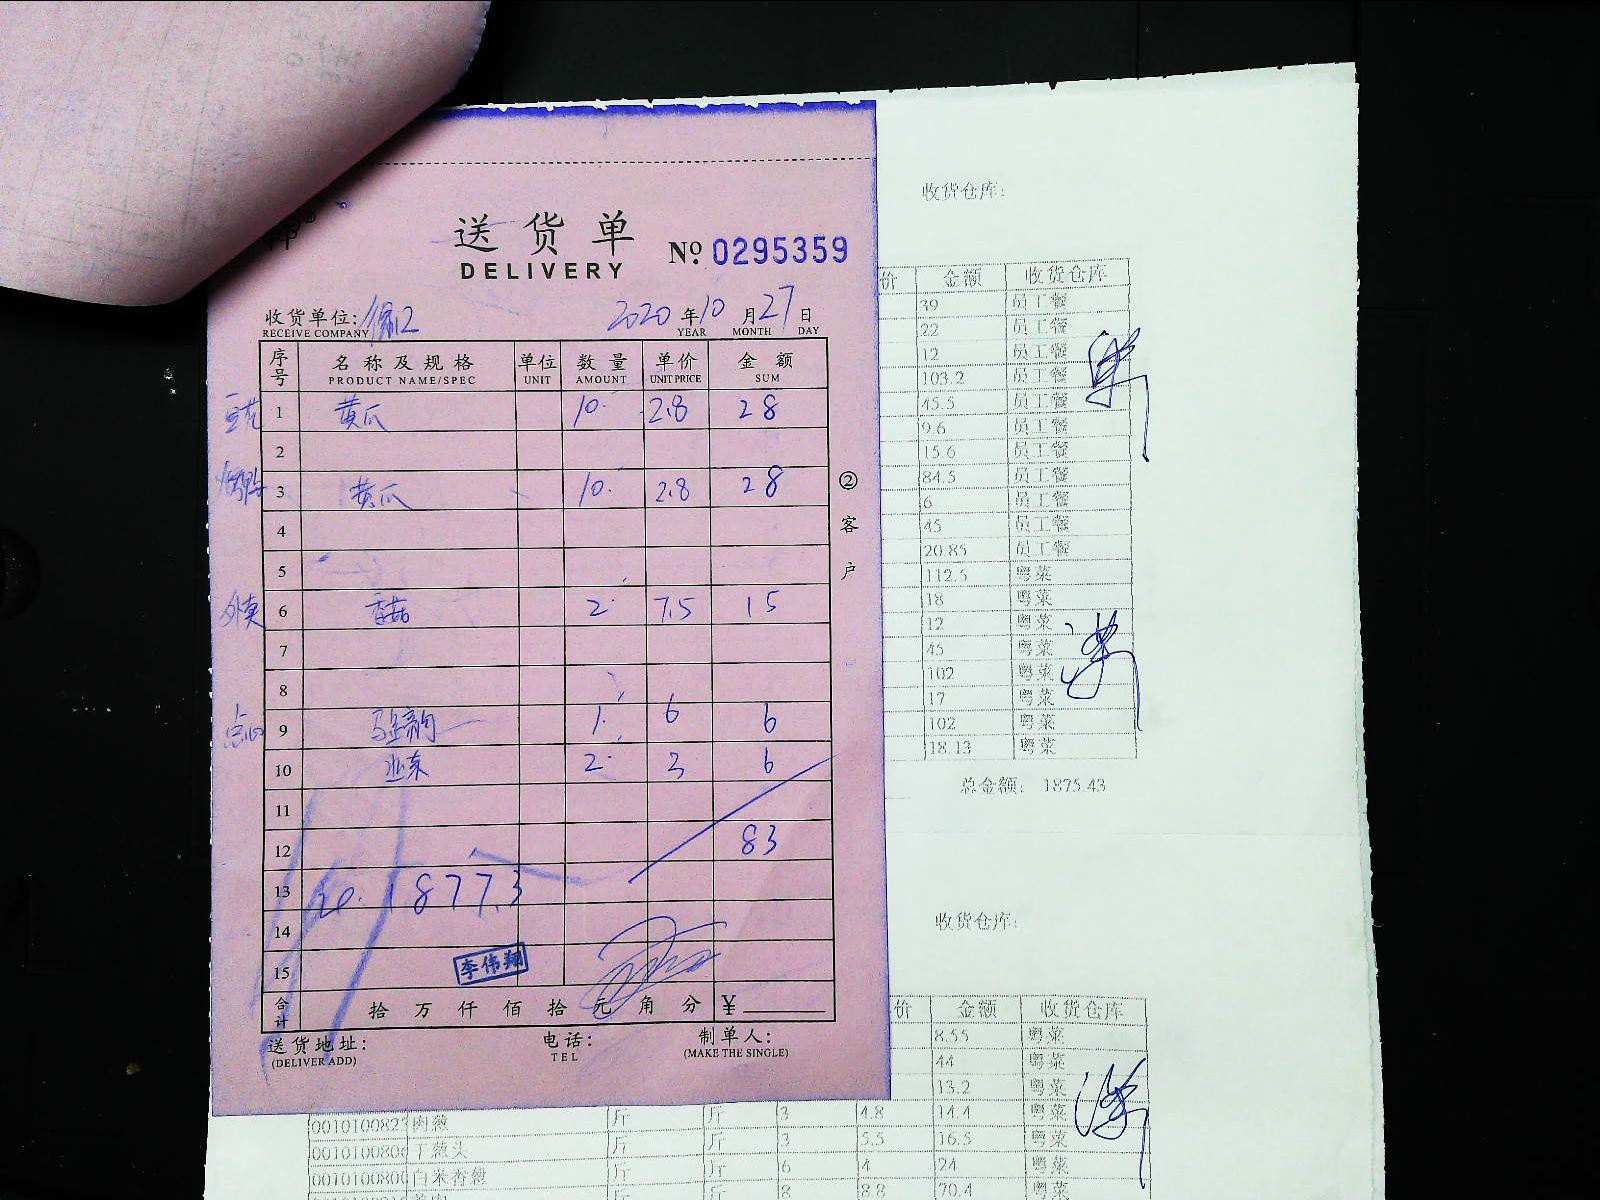 送货单
DELIVERY
№ 0295359
收货单位:
RECEIVE COMPANY
2020 年 10 月 27 日
YEAR MONTH DAY
序号 名称及规格 单位 数量 单价 金额
PRODUCT NAME/SPEC UNIT AMOUNT UNIT PRICE SUM
1 黄瓜 10. 2.8 28
2
3 黄瓜 10. 2.8 28
4
5
外卖 6 香菇 2. 7.5 15
7
8
点心 9 1. 6 6
10 韭菜 2. 3 6
11
12 83
13 1877.3
14
15
李伟翔
合计 拾 万 仟 佰 拾 元 角 分 ¥
送货地址:
(DELIVER ADD)
电话:
TEL
制单人:
(MAKE THE SINGLE)
②客户
收货仓库:
价 金额 收货仓库
39 员工餐
22 员工餐
12 员工餐
103.2 员工餐
45.5 员工餐
9.6 员工餐
15.6 员工餐
84.5 员工餐
6 员工餐
45 员工餐
20.85 员工餐
112.5 粤菜
18 粤菜
12 粤菜
45 粤菜
102 粤菜
17 粤菜
102 粤菜
18.13 粤菜
总金额: 1875.43
收货仓库:
价 金额 收货仓库
8.55 粤菜
44 粤菜
13.2 粤菜
斤 斤 3 4.8 14.4 粤菜
斤 斤 3 5.5 16.5 粤菜
斤 斤 6 4 24 粤菜
斤 斤 8 8.8 70.4 粤菜